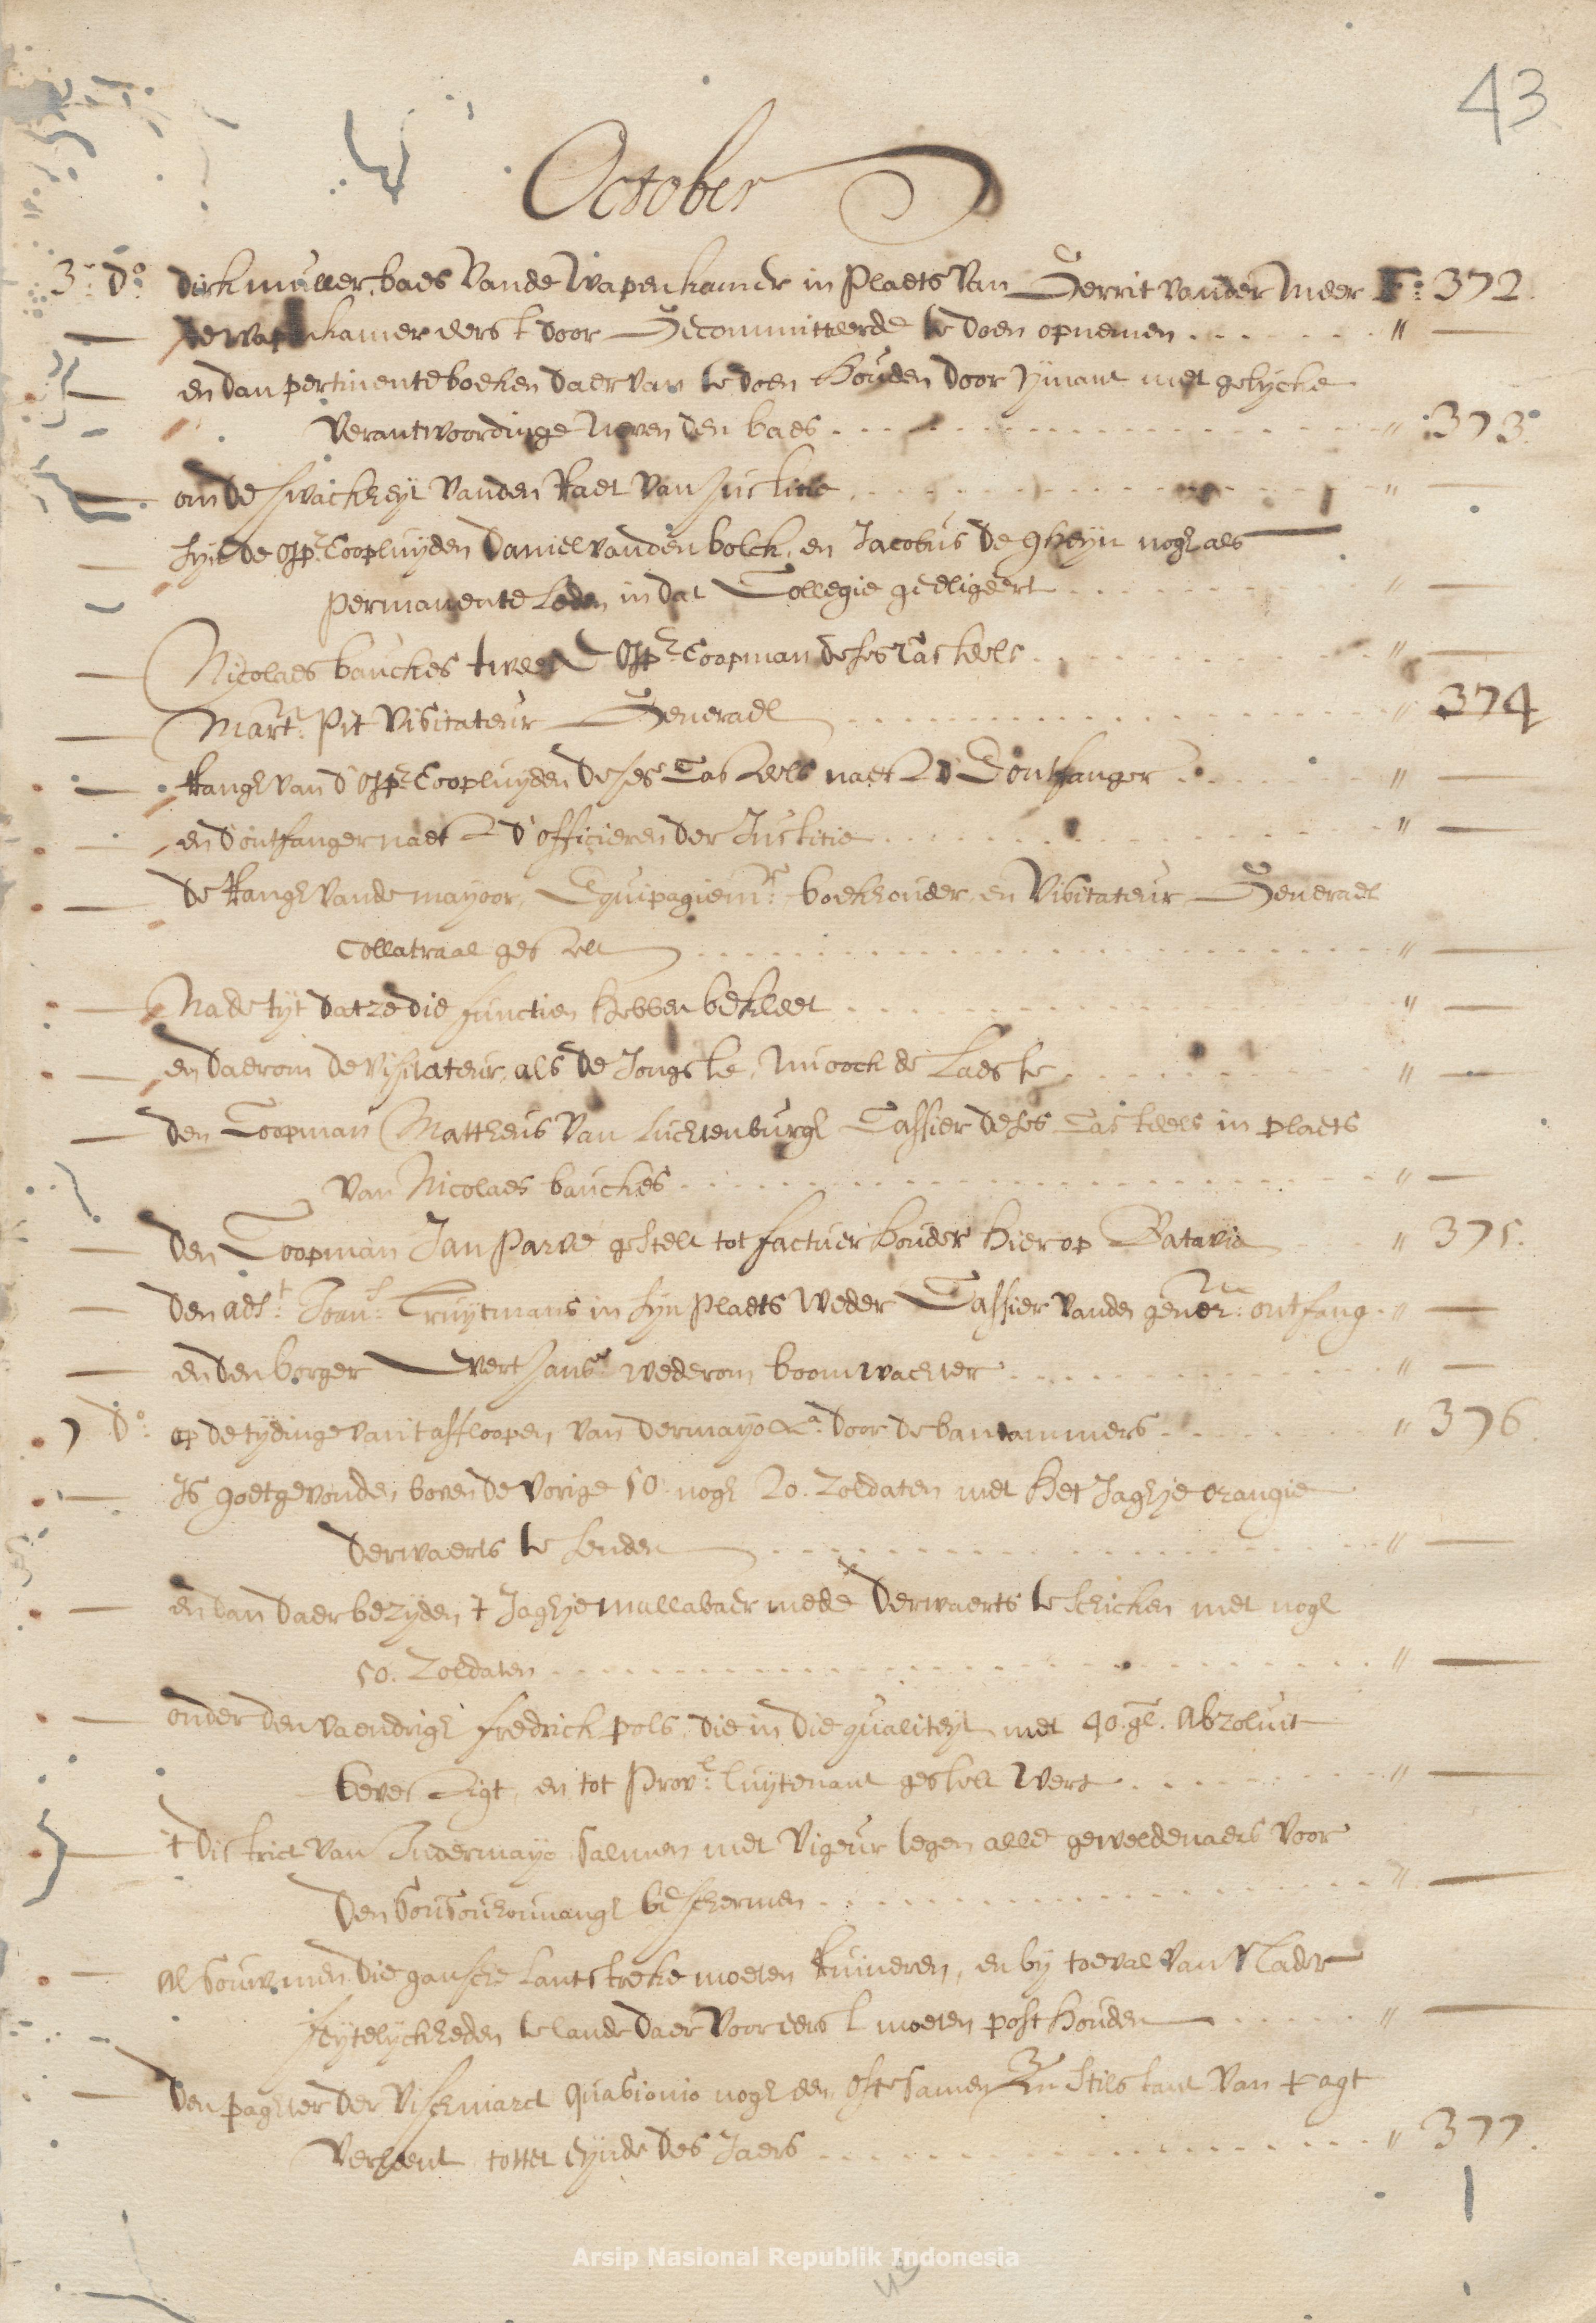 43
October
3:n do: dirk muller, baes vande wapenkamer in plaets van Gerrit vander Meer F:o 372.
— de wapenkamer eerst door Gecommitteerde te doen opnemen . . . . . . " —
— en dan pertinente boeken daer van te doen houden door ymant met gelycke
verantwoordinge neven den baes . . . . . . " 373.
— om de swackheyt vanden Raet van Justitie . . . . . . " —
— syn de opp:r Coopluyden Daniel vanden bolck, en Jacobus de gheyn nogh als
permanente Leden in dat Collegie geeligeert . . . . . . " —
— Nicolaes bauckes tweede opp:r Coopman deses Casteels . . . . . . " —
— Mart:n Pit Visitateur Generael . . . . . . " 374
— Rangh van d' opp:r Coopluyden deses Casteels naest d' Ontfanger . . . . . . " —
— en d' ontfanger naest d' officieren der Justitie . . . . . . " —
— de Rangh vande mayoor, Equipagiem:r boekhouder, en Visitateur Generael
Collatraal gestelt . . . . . . " —
— Na de tyt dat ze die functien hebben bekleet . . . . . . " —
— en daerom de visitateur, als de Jongste, nu ooch de Laeste . . . . . . " —
— den Coopman Mattheus van Luchtenburgh Cassier deses Casteels in plaets
van Nicolaes bauckes . . . . . . " —
— den Coopman Jan Parvé gestelt tot factuerhouder hier op Batavia " 375.
— den ads:t Joan:s Cruytmans in syn plaets weder Cassier vanden gener: ontfang . " —
— en den borger Evert Jansz: wederom boomwachter . . . . . . " —
7 do: op de tydinge van 't afloopen, van dermayo &a: door de bantammers . . . . . . " 376
— Is goetgevonden, boven de vorige 50 nogh 20. zoldaten met het Jaghje orangie
derwaerts te senden . . . . . . " —
— en dan daer bezyden, 't Jaghje mallabaer mede derwaerts te schicken met nogh
50. zoldaten . . . . . . " —
— onder den vaendrigh fredrick pols, die in die qualiteyt met 40. gl. Abzoluit
bevestigt, en tot Prov:l luytenant gestelt wert . . . . . . " —
— 't district van Indermayo salmen met vigeur tegen alle geweldenaers voor
den sousouhounangh beschermen . . . . . . " —
— Al souw men die gansche Lantstreke moeten Ruineren, en by toeval van
feytelyckheden te lande daer voor eerst moeten post houden . . . . . . " —
— den paghter der vischmarct quasionio nogh een ofte samen stilstant van
verleent tottet eynde des Jaers . . . . . . " 377.
Arsip Nasional Republik Indonesia